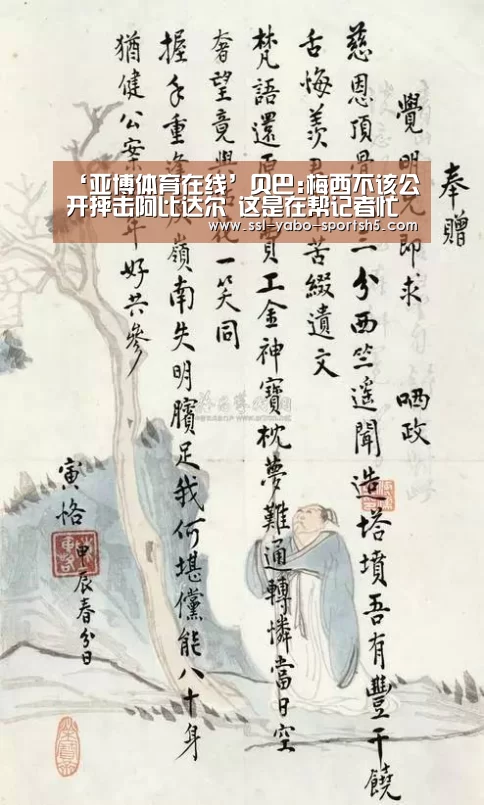 ‘亚博体育在线’贝巴:梅西不该公
开抨击阿比达尔 这是在帮记者忙
www.ssl-yabo-sportsh5.com
奉贈
覺明兄即求 哂政
慈恩頂骨三分西竺遙聞造塔墳吾有豐干饒
舌悔羨君苦綴遺文
梵語還原費工金神寶枕夢難通轉憐當日空
奢望竟與花一笑同
握手重逢嶺南失明臏足我何堪儻能八十身
猶健公案年好共參
寅恪
甲辰春分日